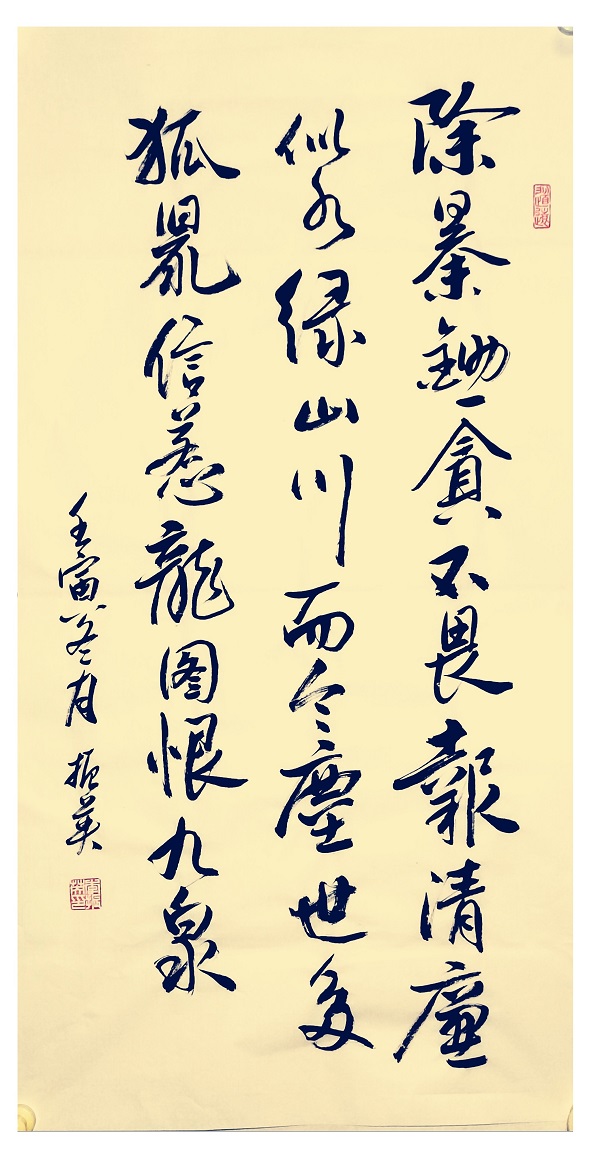 除暴鋤貪不畏報清廉
似水绿山川而今塵世多
狐鼠信惹龍图恨九泉
壬寅冬月 振英